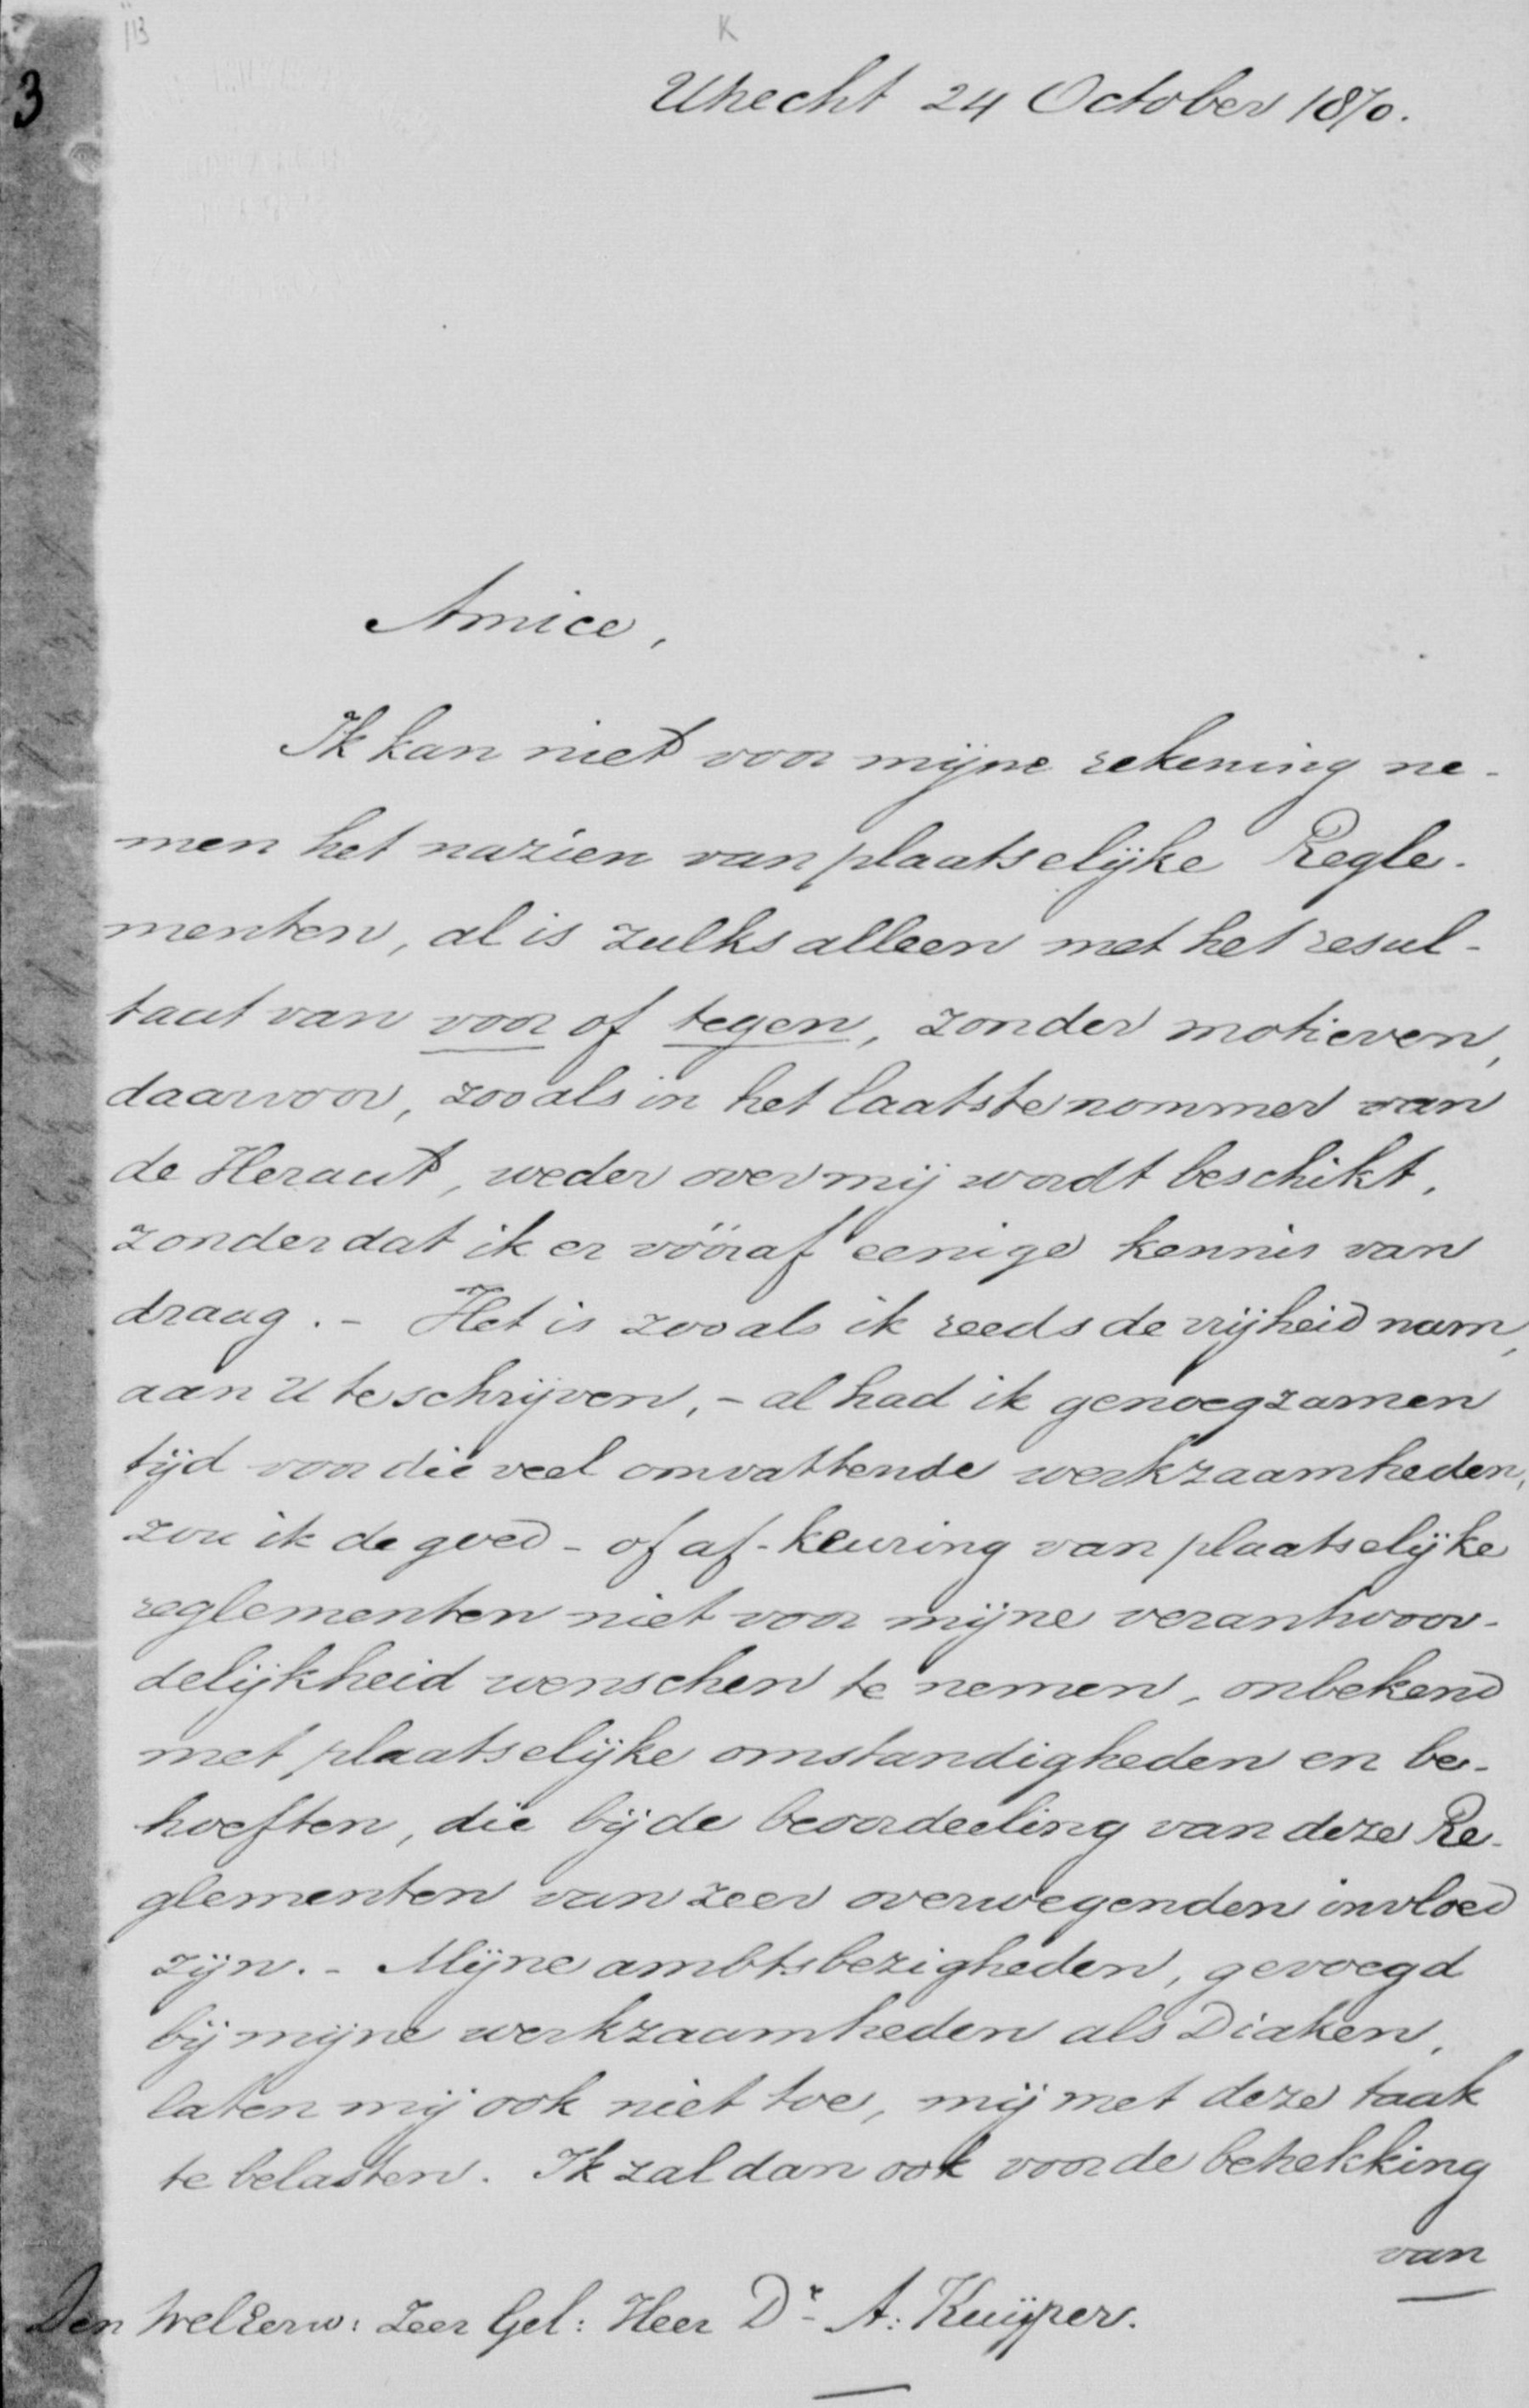 113
K
3
Utrecht 24 October 1870.
Amice,
Ik kan niet voor mijne rekening ne-
men het nazien van plaatselijke Regle-
menten, al is zulks alleen met het resul-
taat van voor of tegen, zonder motieven,
daarvoor, zooals in het laatste nommer van
de Heraut, weder over mij wordt beschikt,
zonder dat ik er vóóraf eenige kennis van
draag. - Het is zooals ik reeds de vrijheid nam,
aan U te schrijven, - al had ik genoegzamen
tijd voor die veel omvattende werkzaamheden,
zou ik de goed- of af-keuring van plaatselijke
reglementen niet voor mijne verantwoor-
delijkheid wenschen te nemen, onbekend
met plaatselijke omstandigheden en be-
hoeften, die bij de beoordeeling van deze Re-
glementen van zeer overwegenden invloed
zijn. - Mijne ambtsbezigheden, gevoegd
bij mijne werkzaamheden als Diaken,
laten mij ook niet toe, mij met deze taak
te belasten. Ik zal dan ook voor de betrekking
van
Den WelEerw: Zeer Gel: Heer Dr. A: Kuijper.